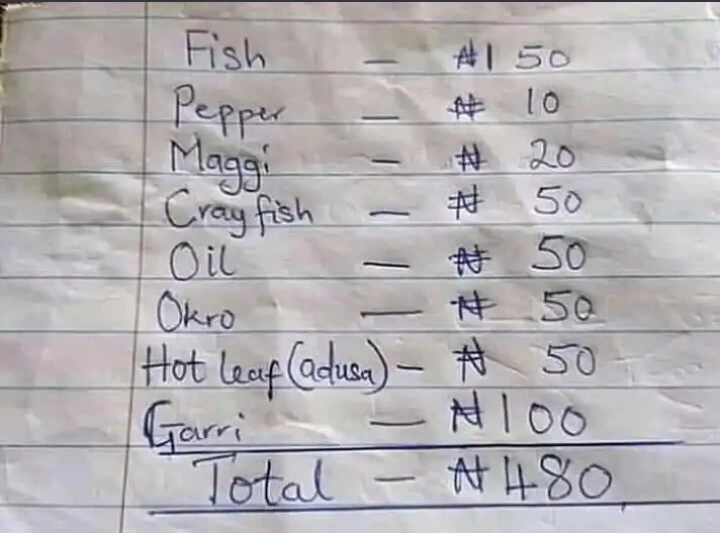 Fish - ₦150
Pepper - ₦ 10
Maggi - ₦ 20
Cray fish - ₦ 50
Oil - ₦ 50
Okro - ₦ 50
Hot leaf (adusa) - ₦ 50
Garri - ₦100
Total - ₦480